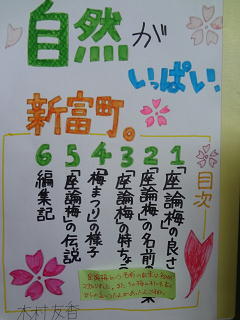 自然が
いっぱい!
新富町。
目次
1 「座論梅」の良さ
2 「座論梅」の名前の
3 「座論梅」の特ちょ
4 「梅まつり」の様子
5 「座論梅」の伝説
6 編集記
木村友香